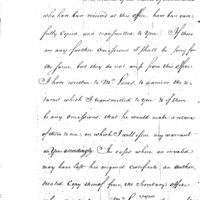 who have been received at this office, have been care-
fully Copied, and transmitted to You. If there
are any further omissions I shall be sorry for
the same, but they do not arise from this office
I have written to Mr. to examine the re-
turns which I transmitted to you & if there
be any omissions, that he would make a return
of them to me; on which I will issue my warrant
to You accordingly. In cases where an invalid
may have lost his original certificate, an authen-
ticated Copy thereof from the Secretary's office